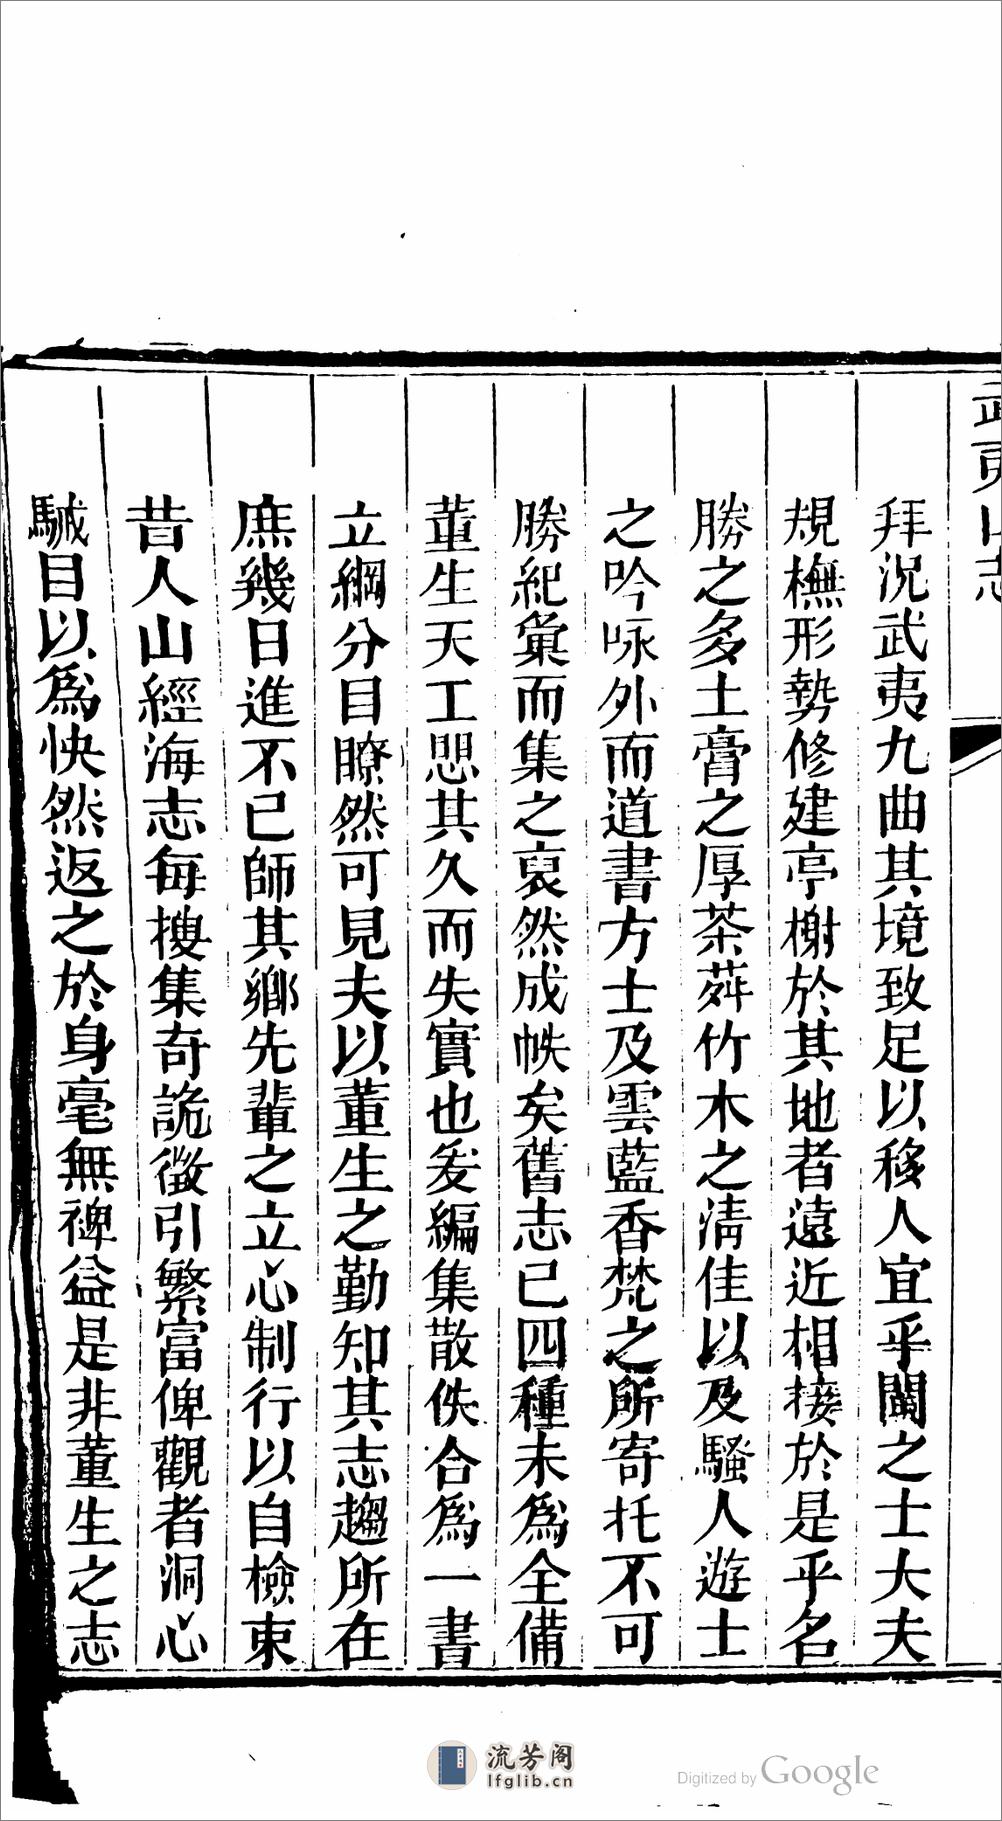 武夷山志
拜況武夷九曲其境致足以移人宜乎閩之士大夫
規橅形勢修建亭榭於其地者遠近相接於是乎名
勝之多土膏之厚茶荈竹木之淸佳以及騷人遊士
之吟咏外而道書方士及雲藍香梵之所寄托不可
勝紀彙而集之裒然成帙矣舊志已四種未爲全備
董生天工思其久而失實也爰編集散佚合爲一書
立綱分目瞭然可見夫以董生之勤知其志趨所在
庶幾日進不已師其鄉先輩之立心制行以自檢束
昔人山經海志每搜集奇詭徵引繁富俾觀者洞心
駴目以爲快然返之於身毫無裨益是非董生之志
流芳阁
lfglib.cn
Digitized by Google